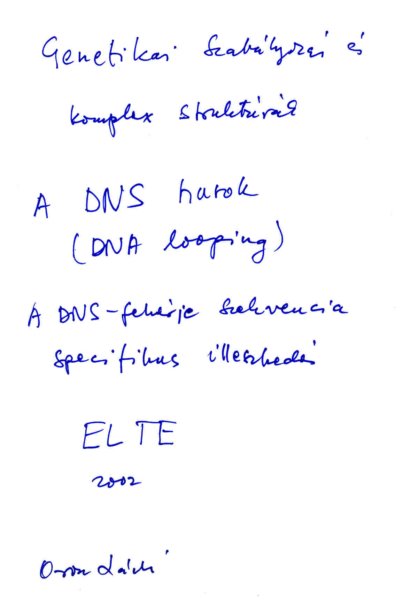 Genetikai szabályozás és
komplex struktúrák
A DNS hurok
(DNA looping)
A DNS-fehérje szekvencia
specifikus illeszkedés
ELTE
2002
László